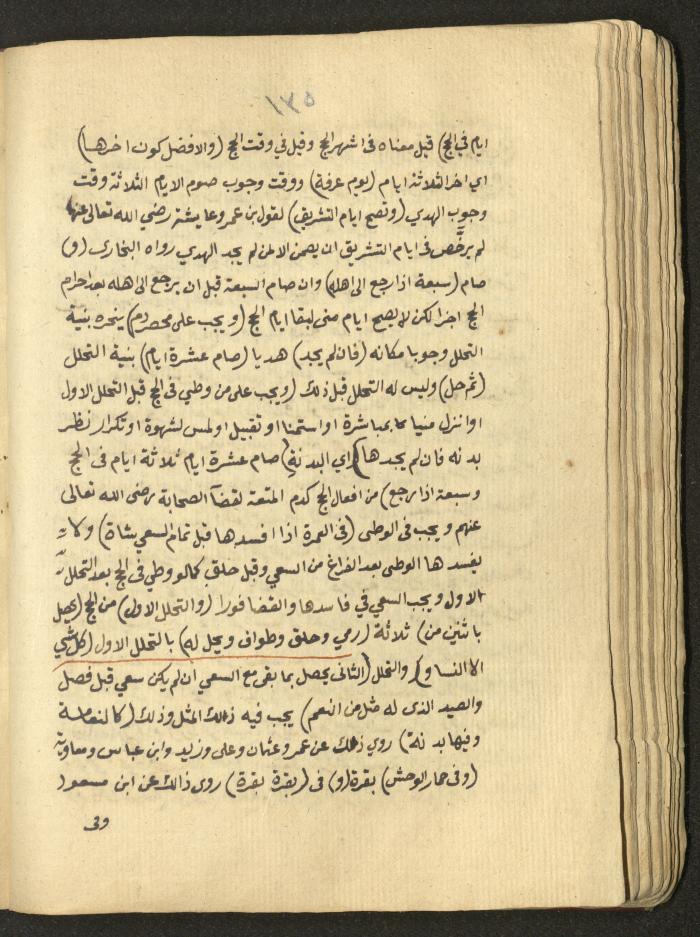 ١٣٥
ايام في الحج) قيل معناه في اشهر الحج وقيل في وقت الحج (والافضل كون اخرها)
اي اخر الثلاثة ايام (يوم عرفة) ووقت وجوب صوم الايام الثلاثة وقت
وجوب الهدي (وتصح ايام التشريق) لقول بن عمر وعايشة رضي الله تعالى عنها
لم يرخَّص في ايام التشريق ان يصمن الا لمن لم يجد الهدي رواه البخاري (و)
صام (سبعة اذا رجع الى اهله) وان صام السبعة قبل ان يرجع الى اهله بعد احرام
الحج اجزا لكن لا يصح ايام منى لبقا ايام الحج (ويجب على محصر دم) ينحره بنية
التحلل وجوبا مكانه (فان لم يجد) هديا (صام عشرة ايام) بنية التحلل
(ثم حل) وليس له التحلل قبل ذلك (ويجب على من وطي في الحج قبل التحلل الاول
او انزل منيا بمباشرة او استمنا او تقبيل او لمس لشهوة او تكرار نظر
بدنه فان لم يجدها) اي البدنة (صام عشرة ايام ثلاثة ايام في الحج
وسبعة اذا رجع) من افعال الحج كدم المتعة لقضآ الصحابة رضي الله تعالى
عنهم ويجب في الوطى (في العمرة اذا افسدها قبل تمام السعي شاة) ولا
يفسدها الوطى بعد الفراغ من السعي وقبل حلق كما لو وطي في الحج بعد التحلل
الاول ويجب السعي في فاسدها والقضا فورا (والتحلل الاول) من الحج (يحصل
باثنين من) ثلاثة (رمي وحلق وطواف ويحل له) بالتحلل الاول (كل شي
الا النسا و) التحلل (الثاني يحصل بما بقى مع السعي ان لم يكن سعي قبل فصل
والصيد الذى له مثل من النعم) يجب فيه ذلك المثل وذلك (كالنعامة
وفيها بدنة) روي ذلك عن عمر وعثمان وعلى وزيد وابن عباس ومعاوية
(وفي حمار الوحش) بقرة (و) في (بقرة بقرة) روى ذالك عن ابن مسعود
وفى